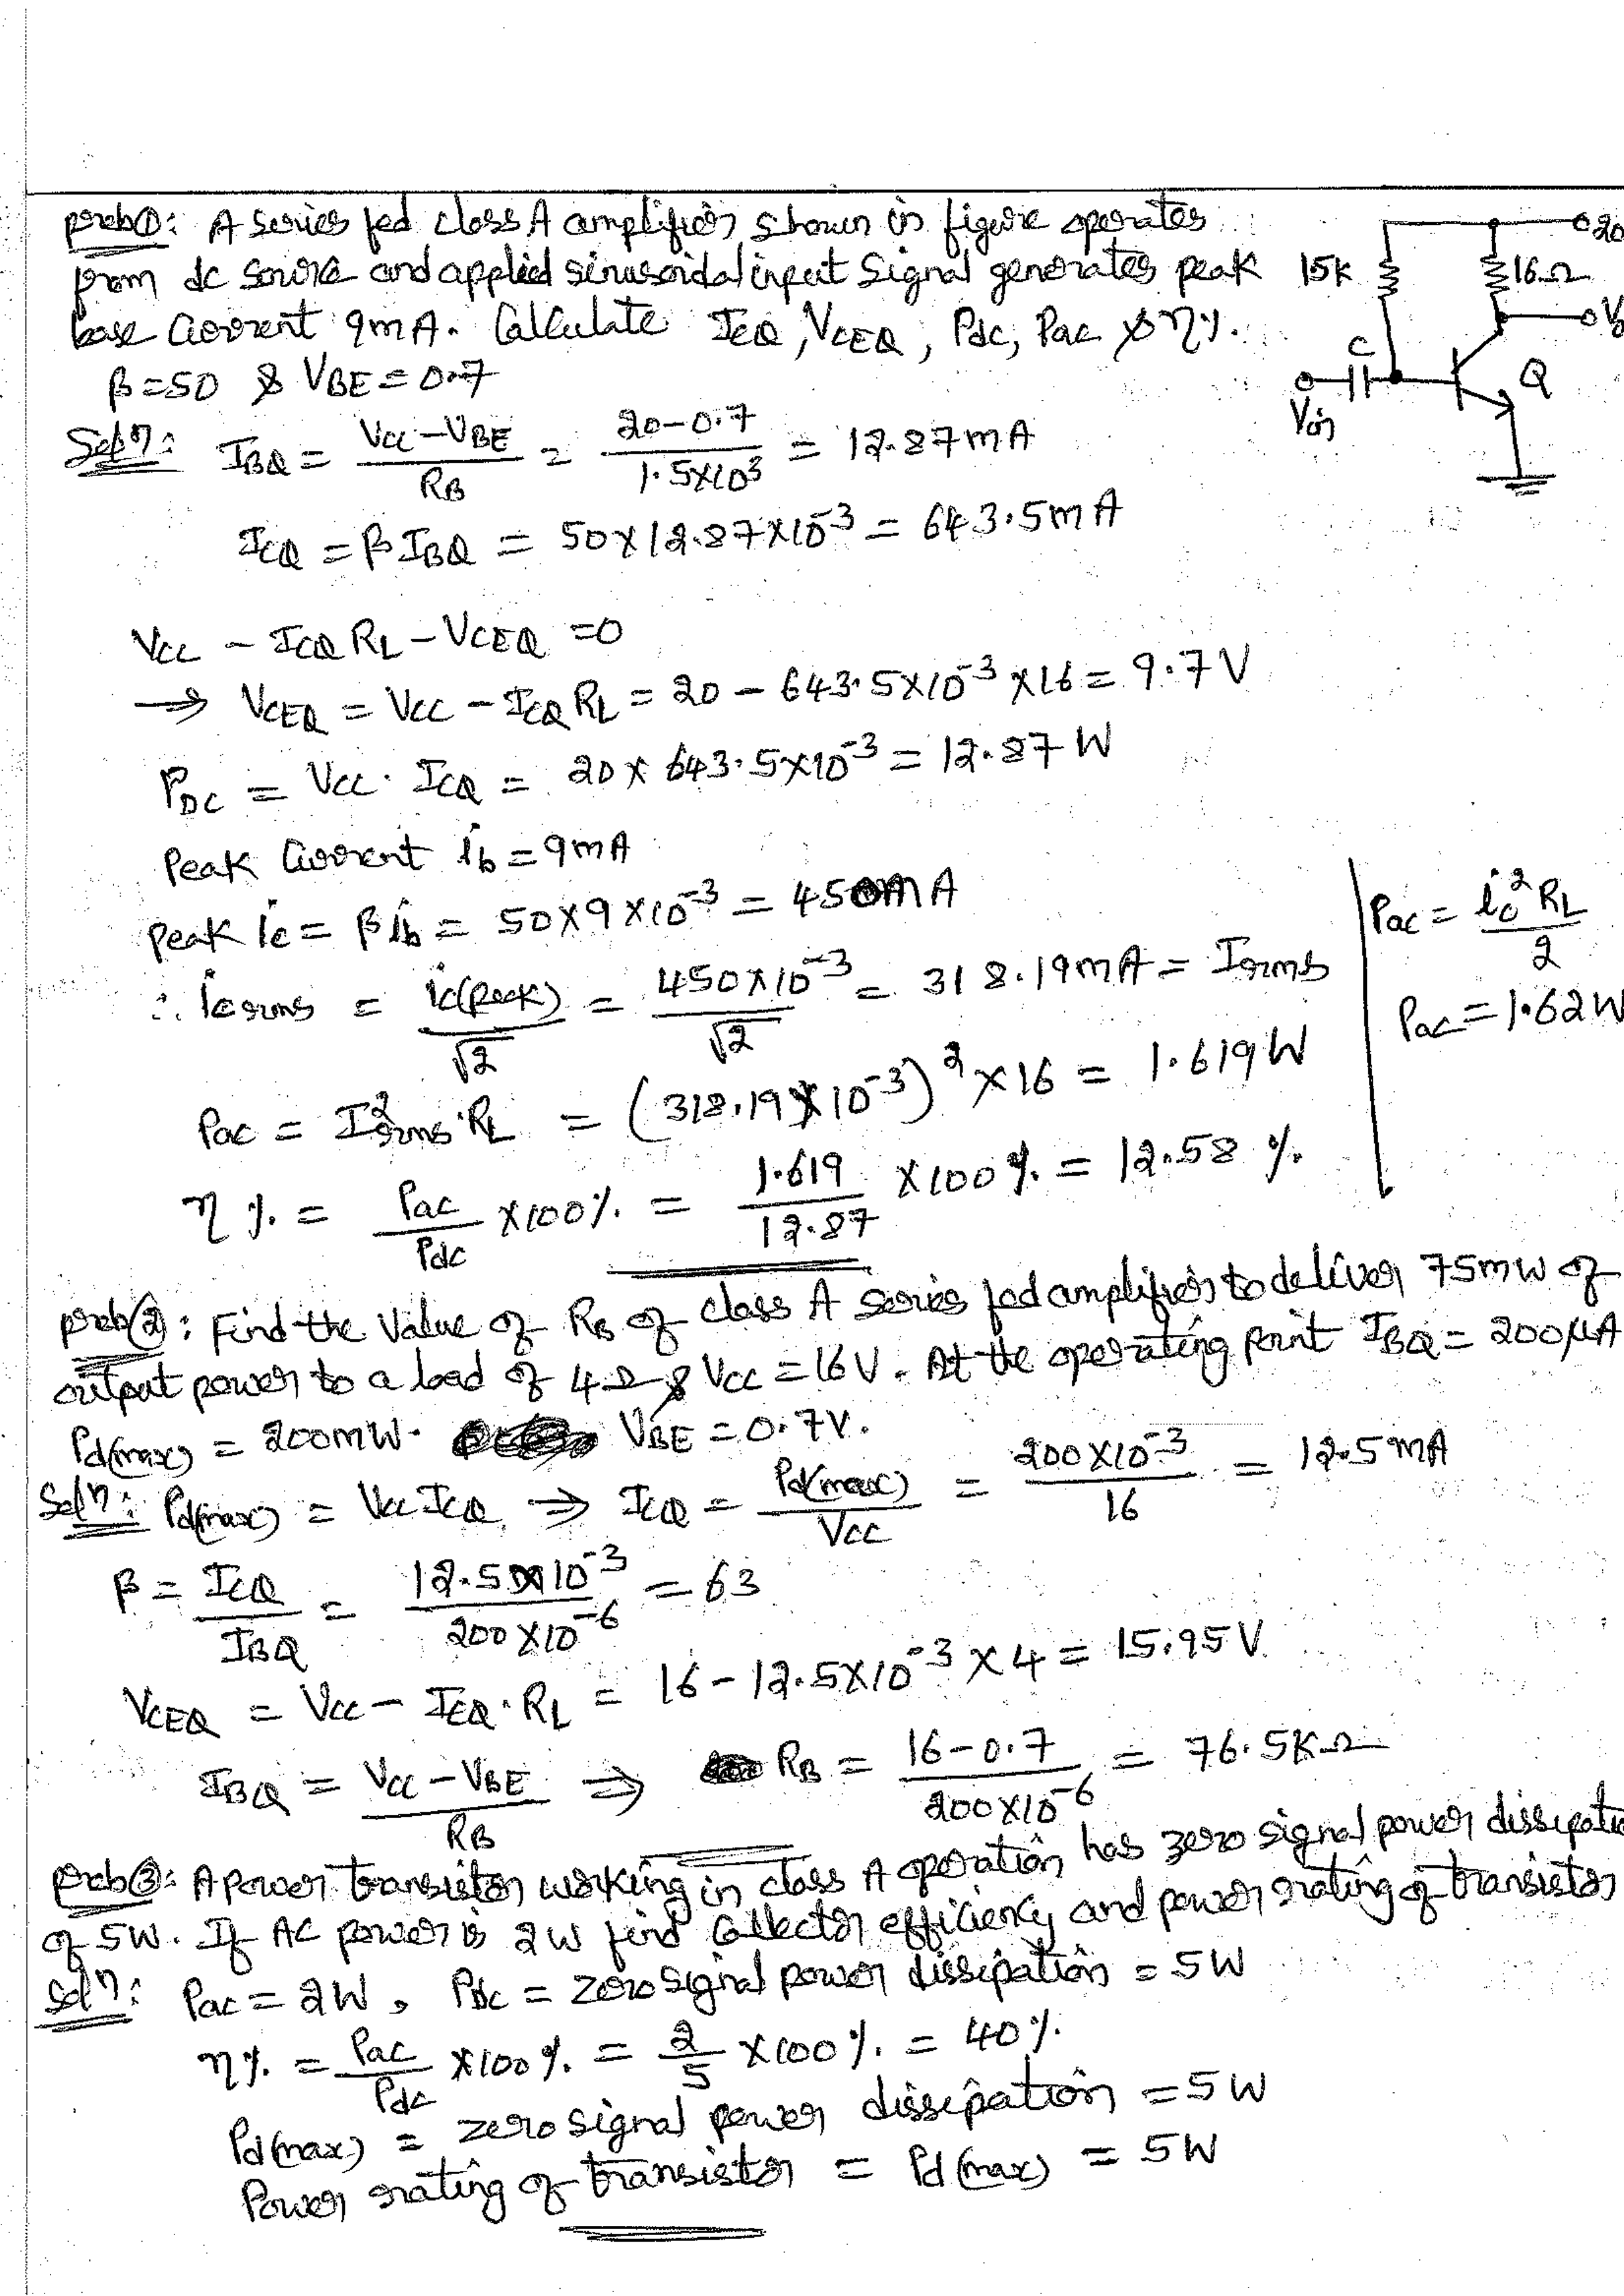 prob①: A series fed class A amplifier shown in figure operates
from dc source and applied sinusoidal input signal generates peak
base current 9mA. Calculate ICQ, VCEQ, Pdc, Pac & η%.
β=50 & VBE=0.7
15K
16Ω
20
Vo
C
Q
Vin
Sol⁠n: IBQ = (VCC-VBE)/RB = (20-0.7)/(1.5×10³) = 12.87mA
ICQ = βIBQ = 50×12.87×10⁻³ = 643.5mA
VCC - ICQ RL - VCEQ = 0
⇒ VCEQ = VCC - ICQ RL = 20 - 643.5×10⁻³×16 = 9.7V
PDC = VCC · ICQ = 20×643.5×10⁻³ = 12.87W
Peak Current ib = 9mA
Peak ic = βib = 50×9×10⁻³ = 450mA
∴ ic rms = ic(peak)/√2 = 450×10⁻³/√2 = 318.19mA = Irms
Pac = I²rms·RL = (318.19×10⁻³)²×16 = 1.619W
η% = Pac/Pdc ×100% = 1.619/12.87 ×100% = 12.58%
Pac = ic²RL/2
Pac = 1.62W
prob②: Find the value of RB of class A series fed amplifier to deliver 75mW of
output power to a load of 4Ω & VCC=16V. At the operating point IBQ=200μA
Pd(max) = 200mW. VBE=0.7V.
Soln: Pd(max) = VCC ICQ ⇒ ICQ = Pd(max)/VCC = 200×10⁻³/16 = 12.5mA
β = ICQ/IBQ = 12.5×10⁻³/200×10⁻⁶ = 63
VCEQ = VCC - ICQ·RL = 16-12.5×10⁻³×4 = 15.95V
IBQ = (VCC-VBE)/RB ⇒ RB = (16-0.7)/(200×10⁻⁶) = 76.5KΩ
prob③: A power transistor working in class A operation has zero signal power dissipatio
of 5W. If AC power is 2W find collector efficiency and power rating of transistor
Soln: Pac = 2W, Pdc = zero signal power dissipation = 5W
η% = Pac/Pdc ×100% = 2/5 ×100% = 40%
Pd(max) = zero signal power dissipation = 5W
Power rating of transistor = Pd(max) = 5W